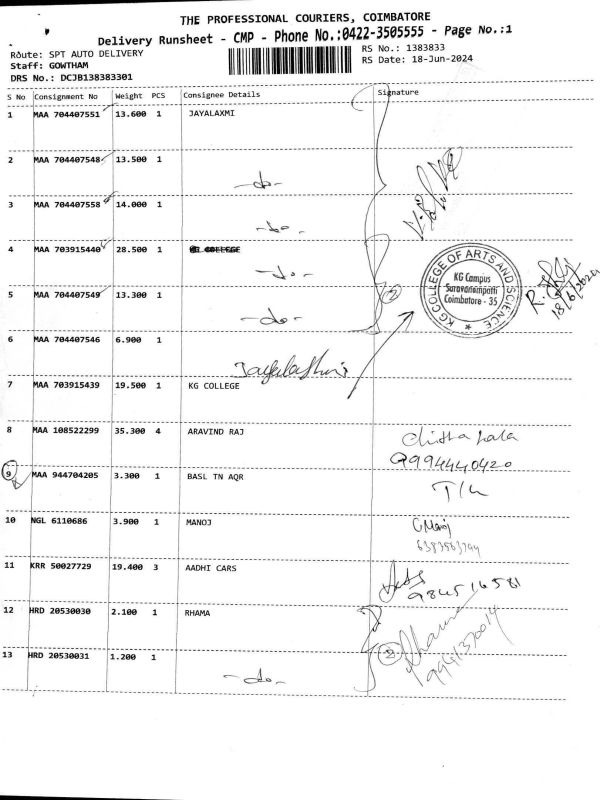 THE PROFESSIONAL COURIERS, COIMBATORE
Delivery Runsheet - CMP - Phone No.:0422-3505555 - Page No.:1
Route: SPT AUTO DELIVERY
RS No.: 1383833
Staff: GOWTHAM
RS Date: 18-Jun-2024
DRS No.: DCJB138383301
S No Consignment No Weight PCS Consignee Details Signature
1 MAA 704407551 13.600 1 JAYALAXMI
2 MAA 704407548 13.500 1
-do-
3 MAA 704407558 14.000 1
-do-
4 MAA 703915440 28.500 1 KG COLLEGE
-do-
5 MAA 704407549 13.300 1
-do-
KG COLLEGE OF ARTS AND SCIENCE
KG Campus
Saravanampatti
Coimbatore - 35
18/6/2024
6 MAA 704407546 6.900 1
7 MAA 703915439 19.500 1 KG COLLEGE
8 MAA 108522299 35.300 4 ARAVIND RAJ
9994440420
9 MAA 944704205 3.300 1 BASL TN AQR
10 NGL 6110686 3.900 1 MANOJ
11 KRR 50027729 19.400 3 AADHI CARS
12 HRD 20530030 2.100 1 RHAMA
2
9941370014
13 HRD 20530031 1.200 1
-do-